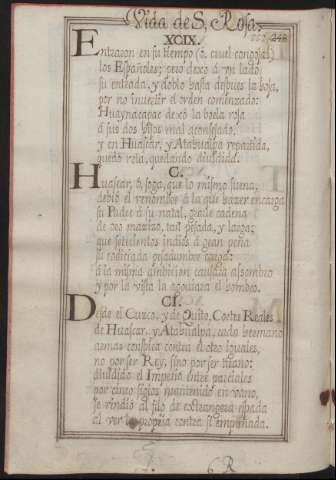 Vida de S. Rosa.
248
XCIX.
Entraron en su tiempo (ò cruel congoja)
los Españoles; pero dexo à un lado
su entrada, y doblo hasta despues la hoja,
por no invertir el orden comenzado:
Huaynacapac dexò la borla roja
à sus dos hijos mal aconsejado,
y en Huascar, y Atabualpa repartida,
quedò rota, quedando dividida.
C.
Huascar, ò soga, que lo mismo suena,
debiò el renombre à la que hazer encarga
su Padre à su natal, grande cadena
de oro mazizo, tan pesada, y larga;
que setecientos indios à gran pena
su codiciada pesadumbre carga
à la misma ambicion causava assombro
y por la vista la agoviava el hombro.
CI.
Desde el Cuzco, y de Quito, Cortes Reales
de Huascar, y Atabualpa, cada hermano
armas conspira contra el otro iguales,
no por ser Rey, sino por ser tirano:
dividido el Imperio entre parciales
por cinco siglos mantenido en vano,
se rindiò al filo de extrangera espada
al ver la propria contra si empuñada.